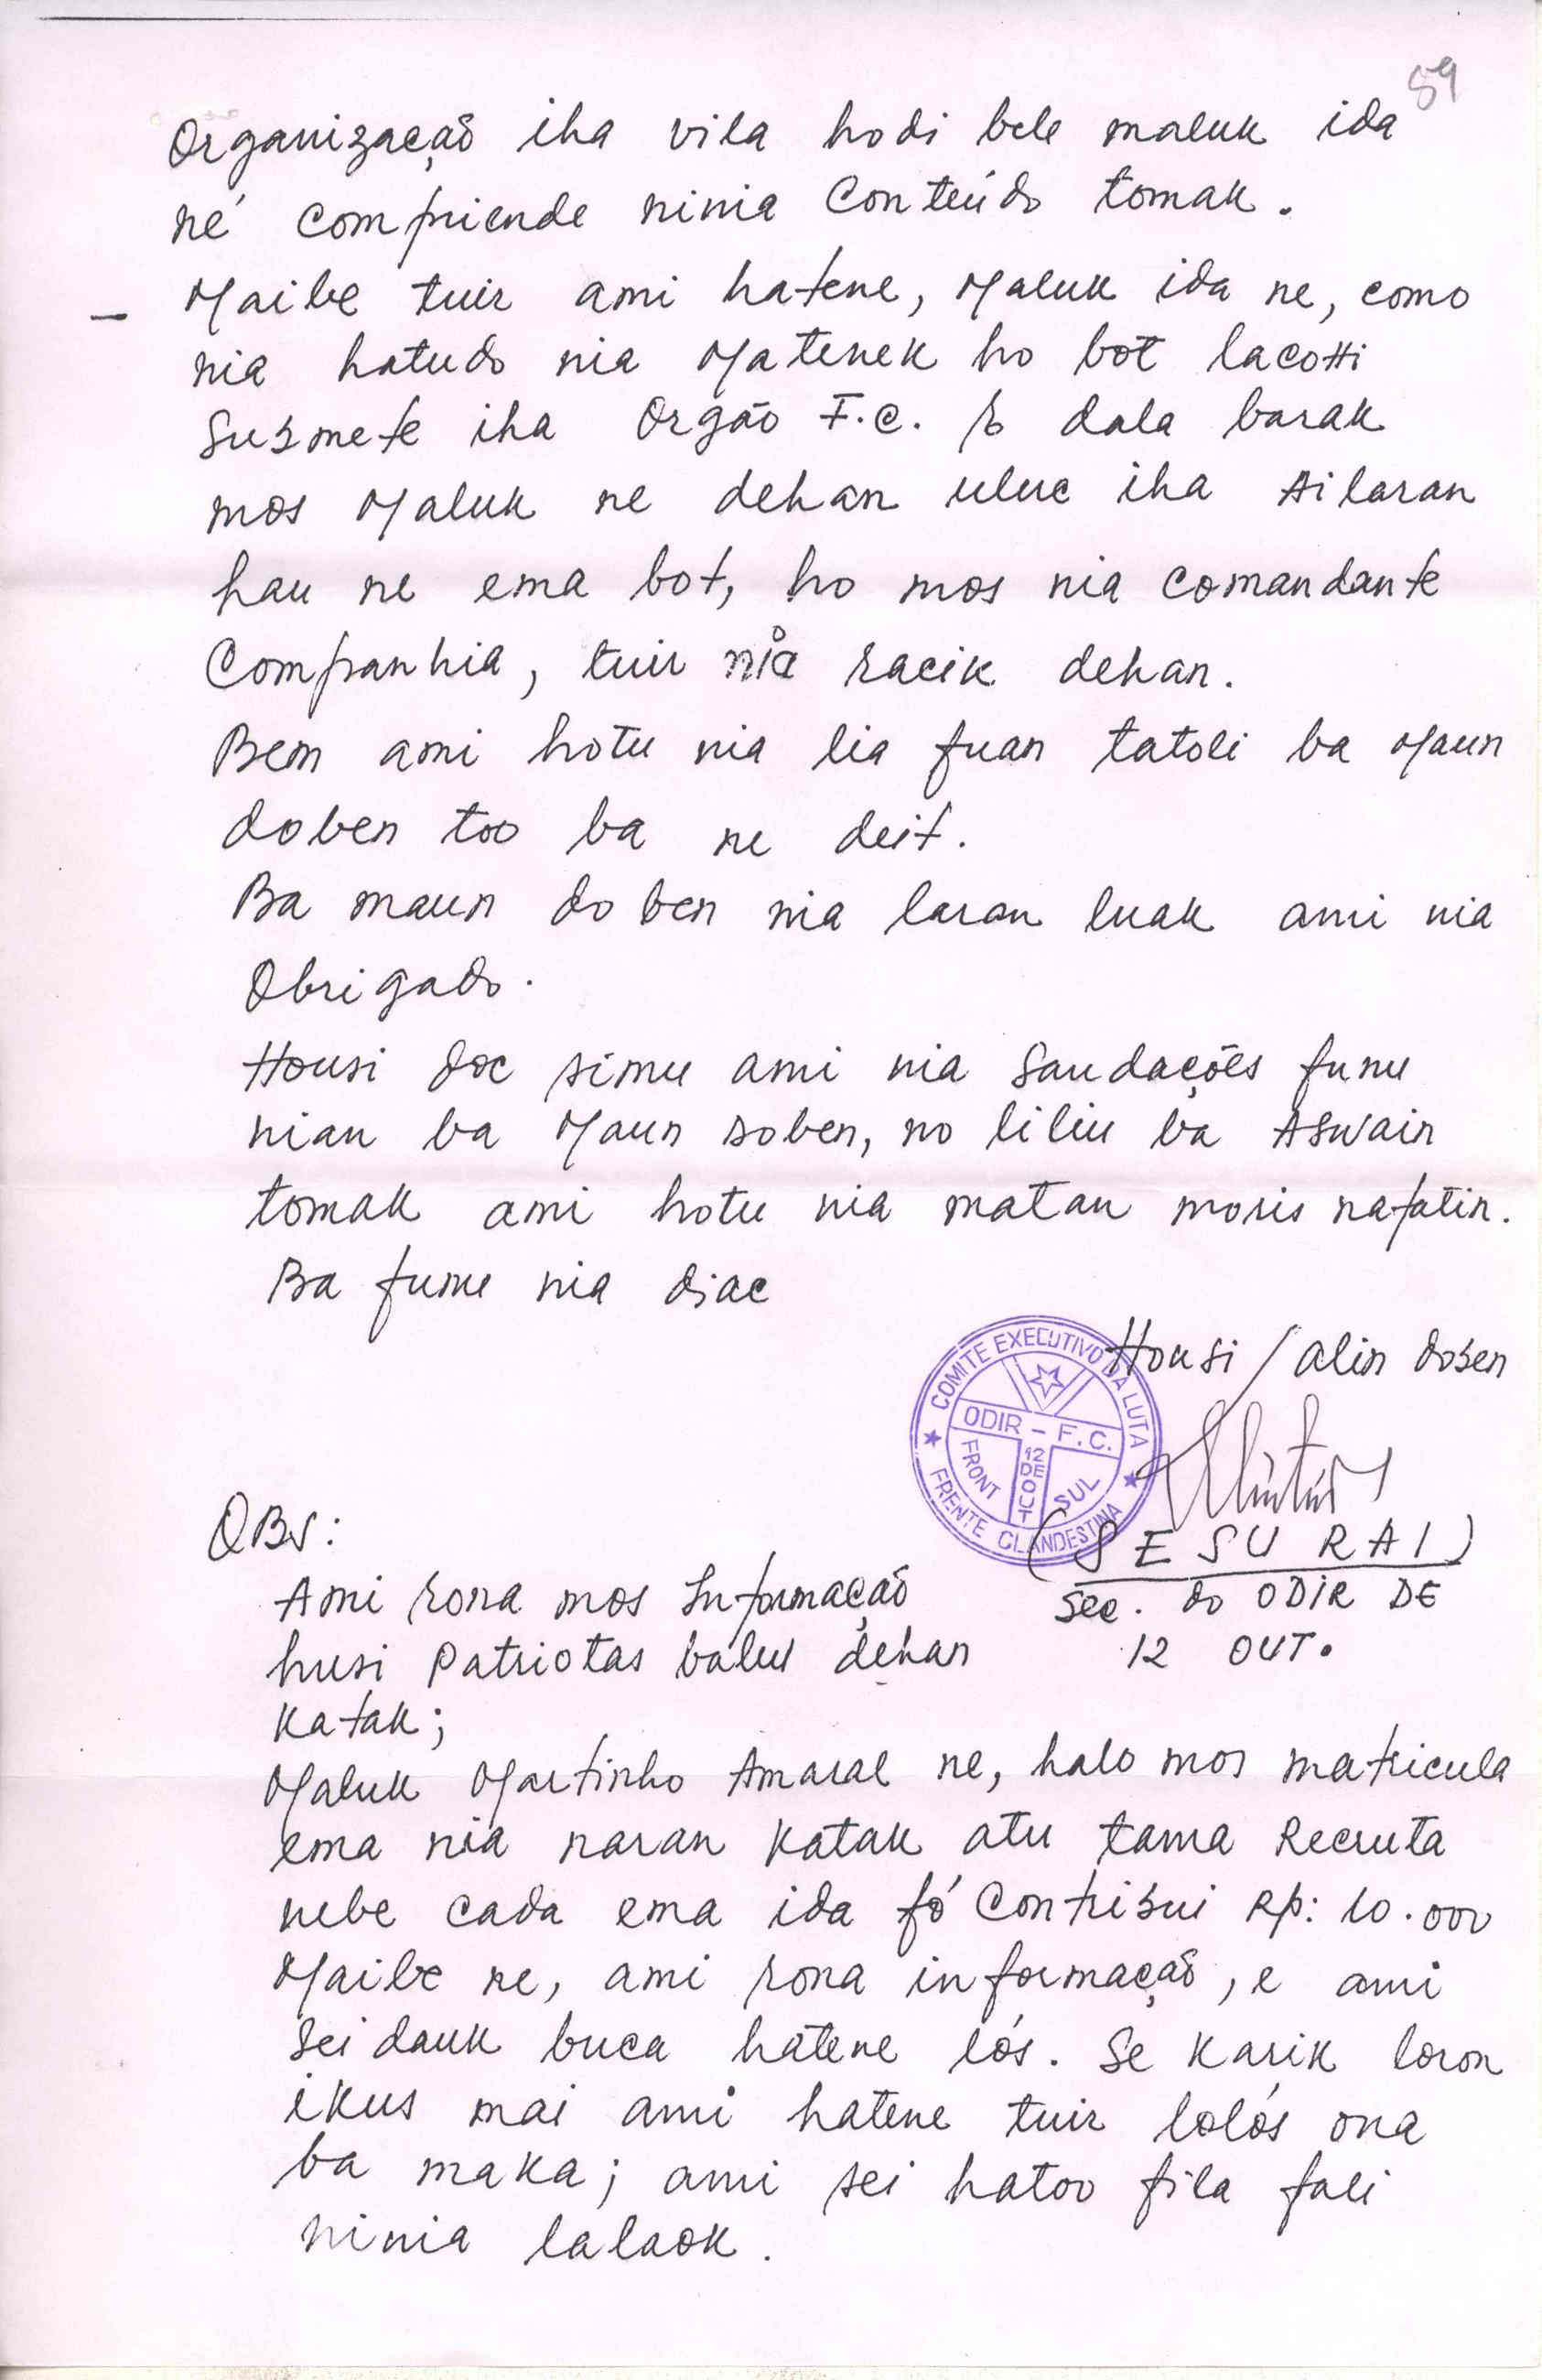 59
Organização iha vila hodi bele maluk ida
né compriende ninia Conteúdo tomak.
_ Maibe tuir ami hatene, Maluk ida ne, como
nia hatudo nia Matenek ho bot lacohi
Submete iha Orgão F.C. E dala barak
mos Maluk ne dehan uluc iha Ailaran
hau ne ema bot, ho mos nia comandante
Companhia, tuir nia racik dehan.
Bem ami hotu nia lia fuan tatoli ba Maun
doben too ba ne deit.
Ba maun doben nia laran luak ami nia
Obrigado.
Housi doc simu ami nia Saudações funu
nian ba Maun doben, no liliu ba Aswain
tomak ami hotu nia matan moris nafatin.
Ba funu nia diac
Housi / alin doben
COMITE EXECUTIVO DA LUTA
ODIR - F.C.
FRONT SUL
12 DE OUT
FRENTE CLANDESTINA
(SESU RAI)
Sec. do ODIR DE
12 OUT.
OBS:
Ami rona mos Informação
husi Patriotas balu dehan
Katak;
Maluk Martinho Amaral ne, halo mos matricula
ema nia naran Katak atu tama Recruta
nebe cada ema ida fó Contribui Rp: 10.000
Maibe ne, ami rona informação, e ami
sei dauk buca hatene lós. Se Karik loron
ikus mai ami hatene tuir lolós ona
ba maka; ami sei hatoo fila fali
ninia lalaok.